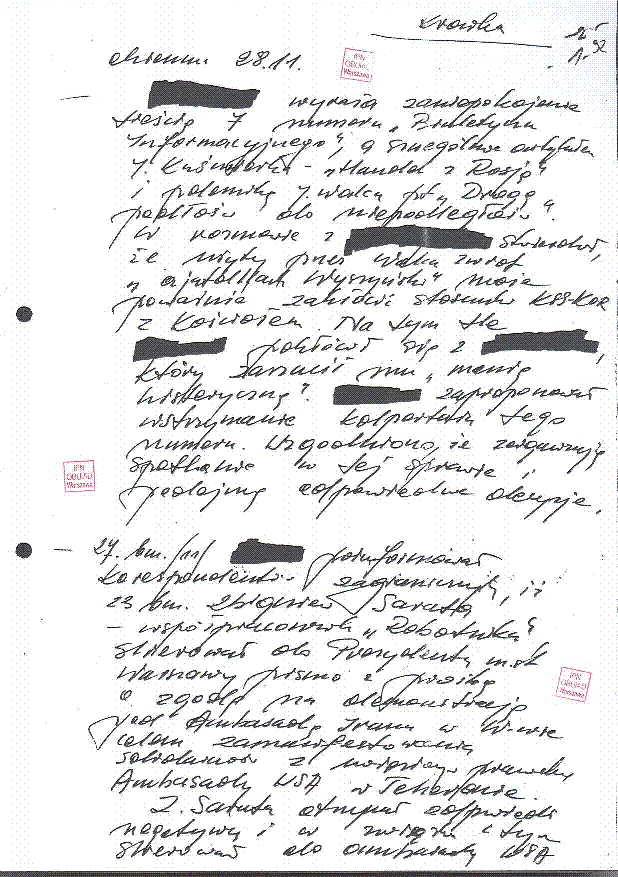 Krówka
28.11.
IPN
OBUiAD
Warszawa
wyraża zaniepokojenie
treścią 7 numeru „Biuletynu
Informacyjnego", a szczególnie artykułem
J. Kuśmierka - „Handel z Rosją"
i polemiką J. Walca pt „Drogą
podłości do niepodległości".
W rozmowie z stwierdził,
że użyty przez Walca zwrot
„ajatollach Wyszyński" może
poważnie zakłócić stosunki KSS-KOR
z Kościołem. Na tym tle
pokłócił się z ,
który zarzucił mu „manię
histeryczną". zaproponował
wstrzymanie kolportażu tego
numeru. Uzgodniono, że zorganizują
spotkanie w tej sprawie i
podejmą odpowiednie decyzje.
IPN
OBUiAD
Warszawa
27. bm. /11/ poinformował
korespondentów zagranicznych, iż
23 bm. Zbigniew Saruta
- współpracownik „Robotnika"
skierował do Prezydenta m.st.
Warszawy pismo z prośbą
o zgodę na demonstrację
pod Ambasadą Iranu w W-wie
celem zamanifestowania
solidarności z uwięzionymi pracownikami
Ambasady USA w Teheranie.
Z. Saruta otrzymał odpowiedź
negatywną i w związku z tym
skierował do ambasady USA
IPN
OBUiAD
Warszawa